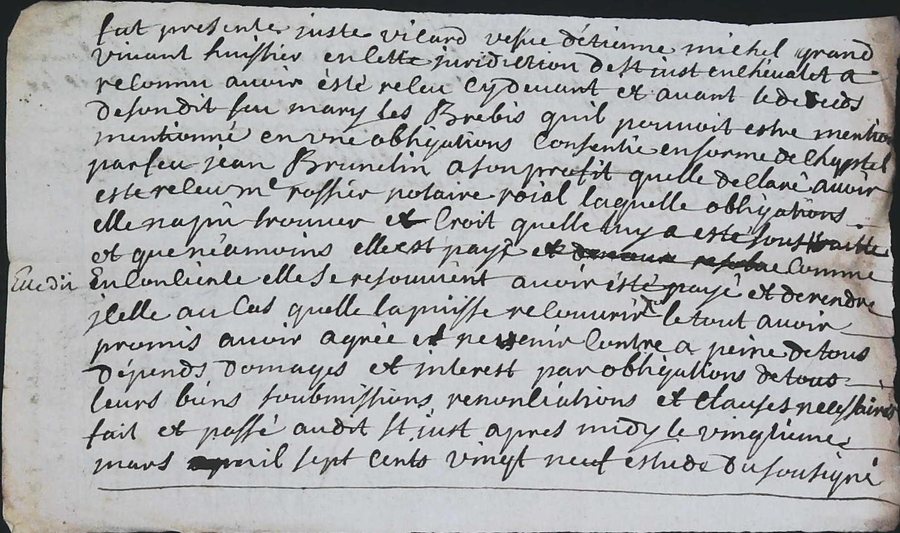 fut presente juste vicard vefve d'etienne michel grand
vivant huissier en cette juridiction de st just en chevalet a
reconnu avoir esté receu cydevant et avant le deceds
de son dit feu mary les Brebis quil pouvoit estre mention
mentionné en une obligations consentie en forme de chyptel
par feu jean Brunelin a son profit quelle declare avoir
este receu me rossier notaire roial laquelle obligations
elle na pu trouver et croit quelle luy a esté soustraitte
et que néamoins elle est payé comme
Elle dit En conciente elle se resouvient avoir été payé et de rendre
jcelle au cas quelle la puisse recouvrir le tout avoir
promis avoir agrée et ne venir contre a peine de tous
dépends domages et interest par obligations de tous
leurs biens soubmissions renonciations et clauses necessaires
fait et passé audit st just apres midy le vingtieme
mars mil sept cents vingt neuf estude du sousigné